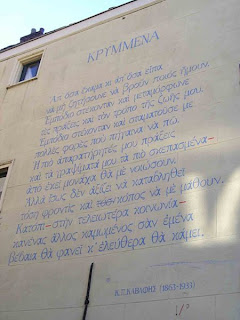 ΚΡΥΜΜΕΝΑ
Απ' όσα έκαμα κι απ' όσα είπα
να μη ζητήσουνε να βρουν ποιος ήμουν.
Εμπόδιο στέκονταν και μεταμόρφωνε
τες πράξεις και τον τρόπο της ζωής μου.
Εμπόδιο στέκονταν και σταματούσε με
πολλές φορές που πήγαινα να πω.
Η πιο απαρατήρητές μου πράξεις
και τα γραψίματά μου τα πιο σκεπασμένα—
από εκεί μονάχα θα με νιώσουν.
Αλλά ίσως δεν αξίζει να καταβληθεί
τόση φροντίς και τόσος κόπος να με μάθουν.
Κατόπι—στην τελειοτέρα κοινωνία—
κανένας άλλος καμωμένος σαν εμένα
βέβαια θα φανεί κ' ελεύθερα θα κάμει.
Κ.Π. ΚΑΒΑΦΗΣ (1863-1933)